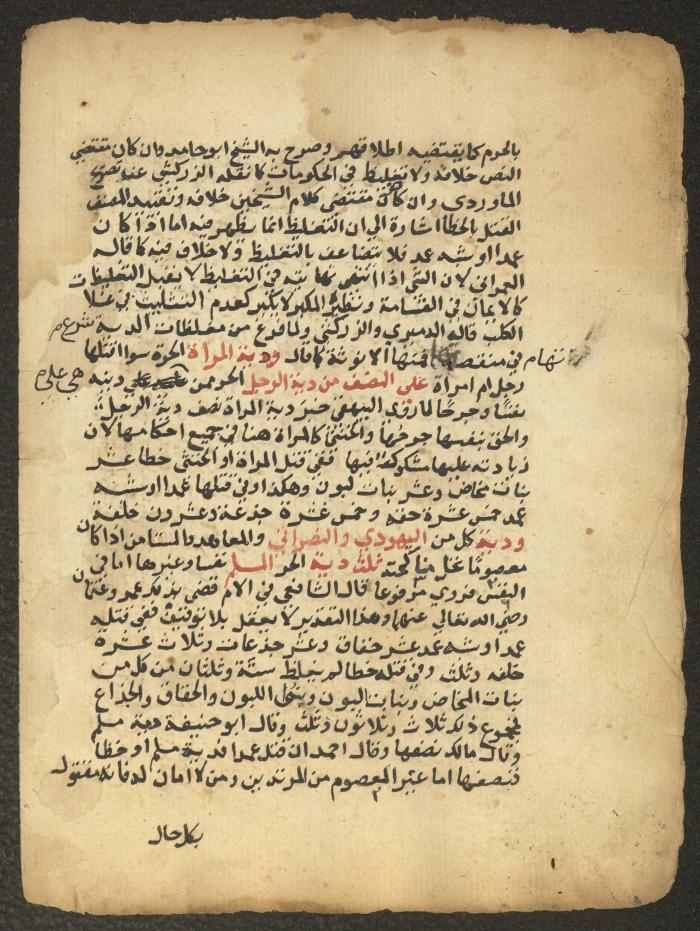 بالحرم كما يقتضيه اطلاقهم وصرح به الشيخ ابو حامد وان كان مقتضى
النص خلافه ولا تغليظ في الحكومات كما نقله الزركشي عن تصريح
الماوردي وان كان مقتضى كلام الشيخين خلافه وتقييد المصنف
القتل بالخطا اشارة الى ان التغليظ انما يظهر فيه اما اذا كان
عمدا او شبه عمد فلا يتضاعف بالتغليظ ولا خلاف فيه كما قاله
العمراني لان الشي اذا انتهى نهايته في التغليظ لا يقبل التغليظات
كالايمان في القسامة ونظيره المكبر لا يكبر كعدم التثليث في غسلات
الكلب قاله الدميري والزركشي ولما فرغ من مغلظات الدية شرع
في منقصاتها فمنها الانوثة كما قال ودية المراة الحرة سوا اقتلها
رجل ام امراة على النصف من دية الرجل الحر ممن هي على دينه
نفسا وجرحا لما روى البيهقي خبر دية المراة نصف دية الرجل
والحق بنفسها جرحها والخنثى كالمراة هنا في جميع احكامها لان
زيادته عليها مشكوك فيها ففي قتل المراة او الخنثى خطا عشر
بنات مخاض وعشر بنات لبون وهكذا وفي قتلها عمدا او شبه
عمد خمس عشرة حقة وخمس عشرة جذعة وعشرون خلفة
ودية كل من اليهودي والنصراني والمعاهد والمستامن اذا كان
معصوما تحل مناكحته ثلث دية الحر المسلم نفسا وغيرها اما في
النفس فروي مرفوعا قال الشافعي في الام قضى بذلك عمر وعثمان
رضي الله تعالى عنهما وهذا التقدير لا يعقل بلا توقيف ففي قتله
عمدا او شبه عمد عشر حقاق وعشر جذعات وثلاث عشرة
خلفة وثلث وفي قتله خطا لم يغلظ ستة وثلثان من كل من
بنات المخاض وبنات اللبون وبني اللبون والحقاق والجذاع
فمجموع ذلك ثلاث وثلاثون وثلث وقال ابو حنيفة دية مسلم
وقال مالك نصفها وقال احمد ان قتل عمدا فدية مسلم او خطا
فنصفها اما غير المعصوم من المرتدين ومن لا امان له فانه مقتول
بكل حال